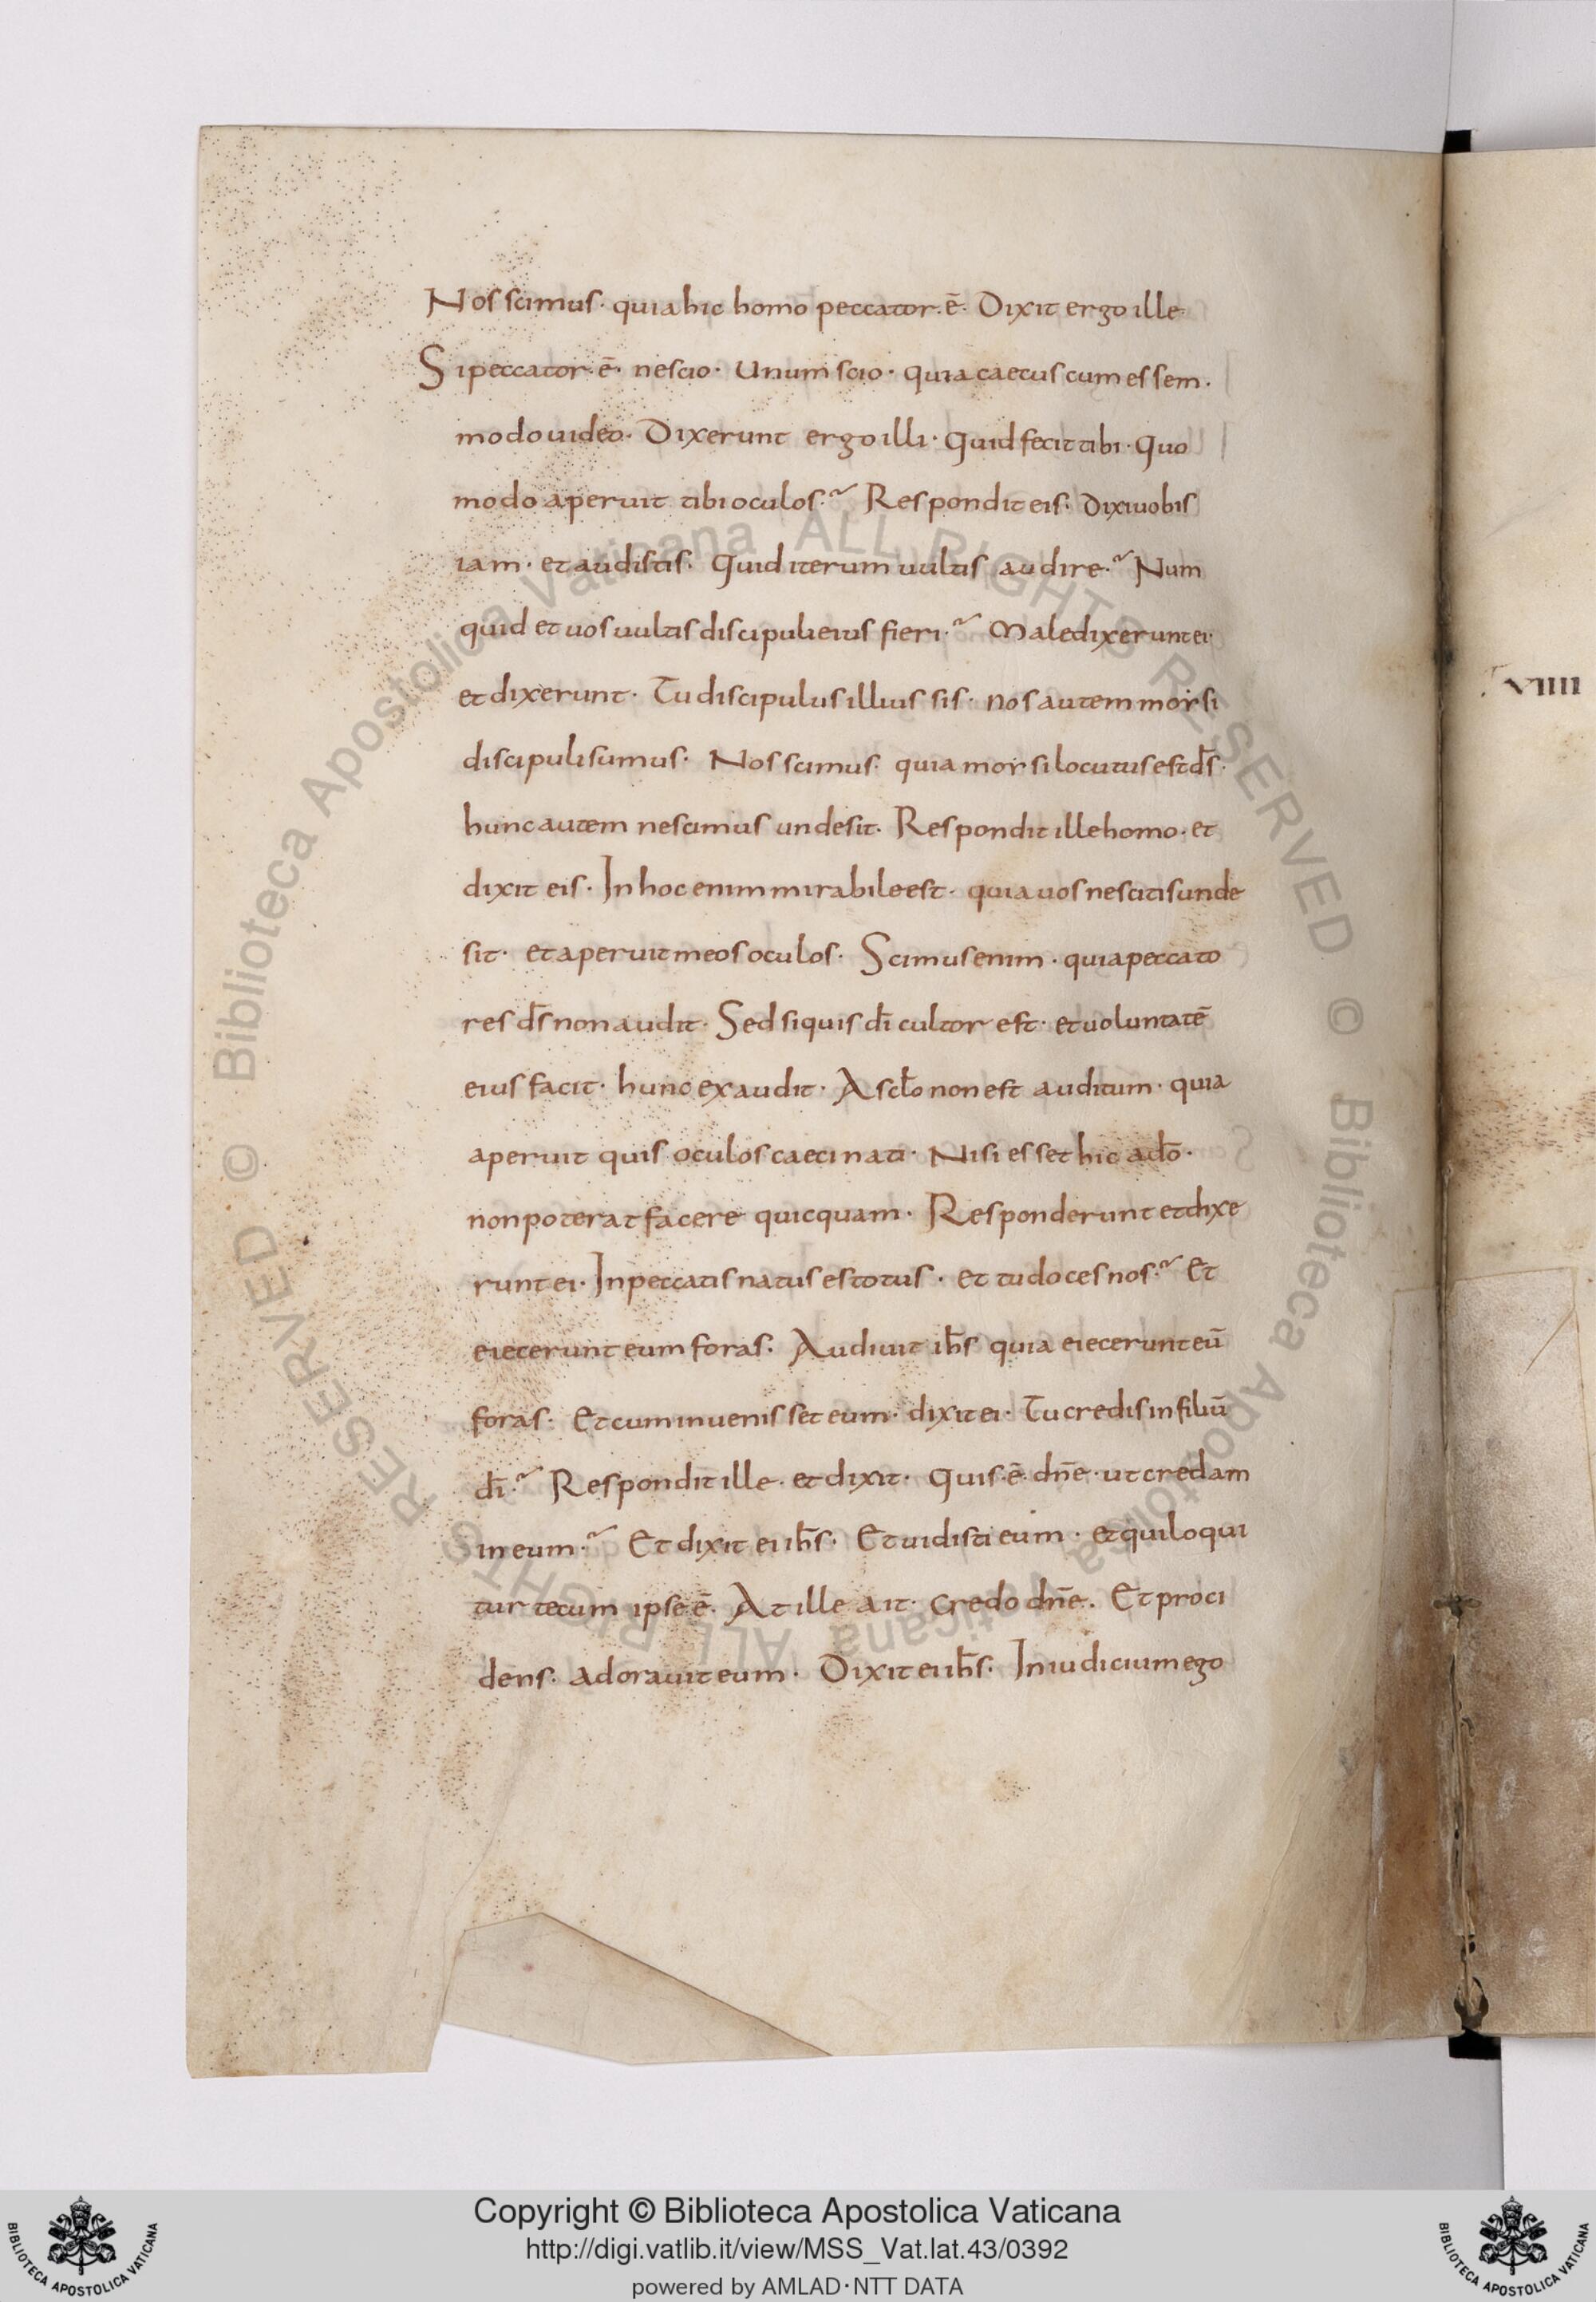 Nos scimus· quia hic homo peccator·ē· Dixit ergo ille·
Si peccator·ē· nescio· Unum scio· quia caecus cum essem·
modo uideo· Dixerunt ergo illi· Quid fecit tibi· Quo
modo aperuit tibi oculos? Respondit eis· Dixi uobis
iam· et audistis· Quid iterum uultis audire? Num
quid et uos uultis discipuli eius fieri? Maledixerunt ei·
et dixerunt· Tu discipulus illius sis· nos autem moysi
discipuli sumus· Nos scimus· quia moysi locutus est d̄s·
hunc autem nescimus unde sit· Respondit ille homo· et
dixit eis· In hoc enim mirabile est· quia uos nescitis unde
sit· et aperuit meos oculos· Scimus enim· quia peccato
res d̄s non audit· Sed si quis d̄i cultor est· et uoluntatē
eius facit· hunc exaudit· A sc̄lo non est auditum· quia
aperuit quis oculos caeci nati· Nisi esset hic a d̄o·
non poterat facere quicquam· Responderunt et dixe
runt ei· In peccatis natus es totus· et tu doces nos? Et
eiecerunt eum foras· Audiuit ih̄s quia eiecerunt eū
foras· Et cum inuenisset eum· dixit ei· Tu credis in filiū
d̄i? Respondit ille· et dixit· Quis·ē· dn̄e· ut credam
in eum? Et dixit ei ih̄s· Et uidisti eum· et qui loqui
tur tecum ipse·ē· At ille ait· Credo dn̄e. Et proci
dens· adorauit eum· Dixit ei ih̄s· In iudicium ego
VIIII
Biblioteca Apostolica Vaticana ALL RIGHTS RESERVED © Biblioteca Apostolica Vaticana ALL RIGHTS RESERVED ©
Copyright © Biblioteca Apostolica Vaticana
http://digi.vatlib.it/view/MSS_Vat.lat.43/0392
powered by AMLAD·NTT DATA
BIBLIOTECA APOSTOLICA VATICANA
BIBLIOTECA APOSTOLICA VATICANA